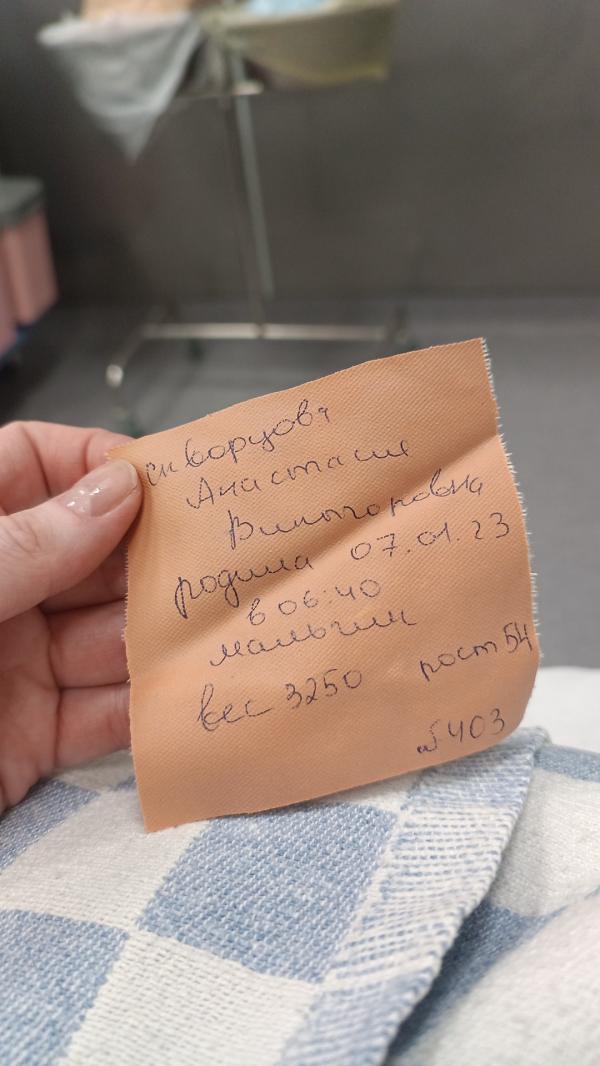 Скворцова
Анастасия
Викторовна
родила 07.01.23
в 06:40
мальчик
вес 3250 рост 54
№403